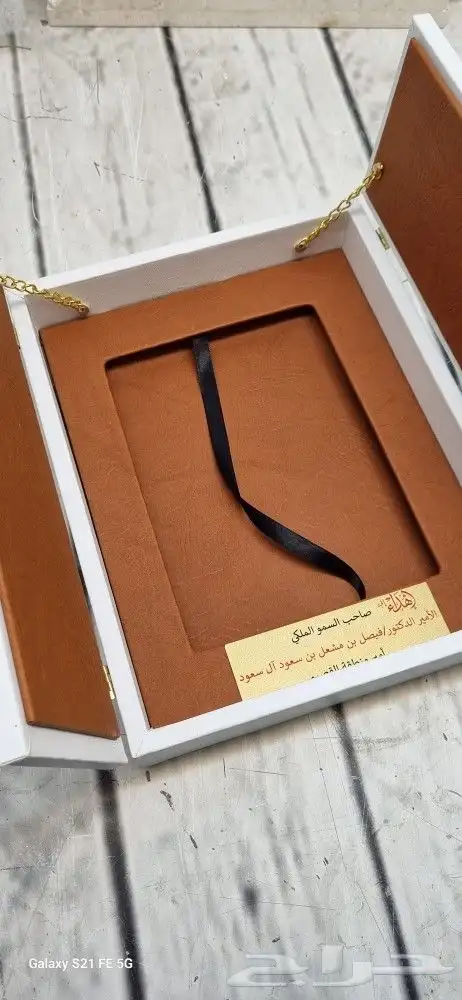 إهداء إلى
صاحب السمو الملكي
الأمير الدكتور/فيصل بن مشعل بن سعود آل سعود
أمير منطقة القصيم
Galaxy S21 FE 5G
حراج